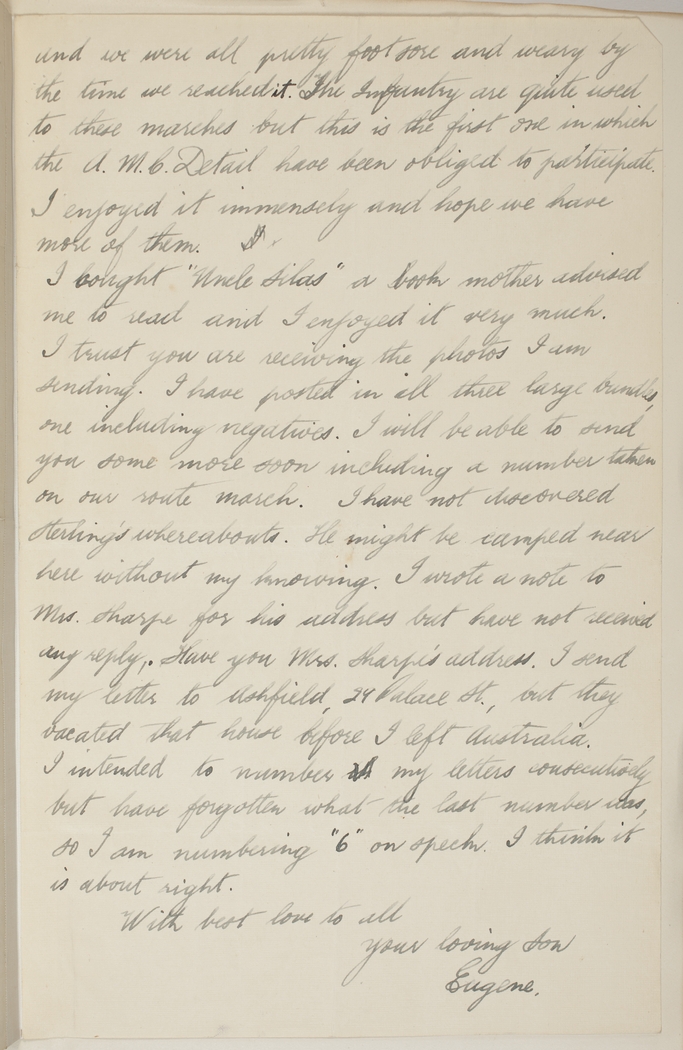 and we were all pretty footsore and weary by
the time we reached it. The Infantry are quite used
to these marches but this is the first one in which
the A. M. C. Detail have been obliged to participate.
I enjoyed it immensely and hope we have
more of them.
I bought "Uncle Silas" a book mother advised
me to read and I enjoyed it very much.
I trust you are receiving the photos I am
sending. I have posted in all three large bundles,
one including negatives. I will be able to send
you some more soon including a number taken
on our route march. I have not discovered
Sterling's whereabouts. He might be camped near
here without my knowing. I wrote a note to
Mrs. Sharpe for his address but have not received
any reply,. Have you Mrs. Sharpe's address. I send
my letter to Ashfield, 24 Palace St., but they
vacated that house before I left Australia.
I intended to number my letters consecutively
but have forgotten what the last number was,
so I am numbering "6" on speck. I think it
is about right.
With best love to all
your loving son
Eugene.